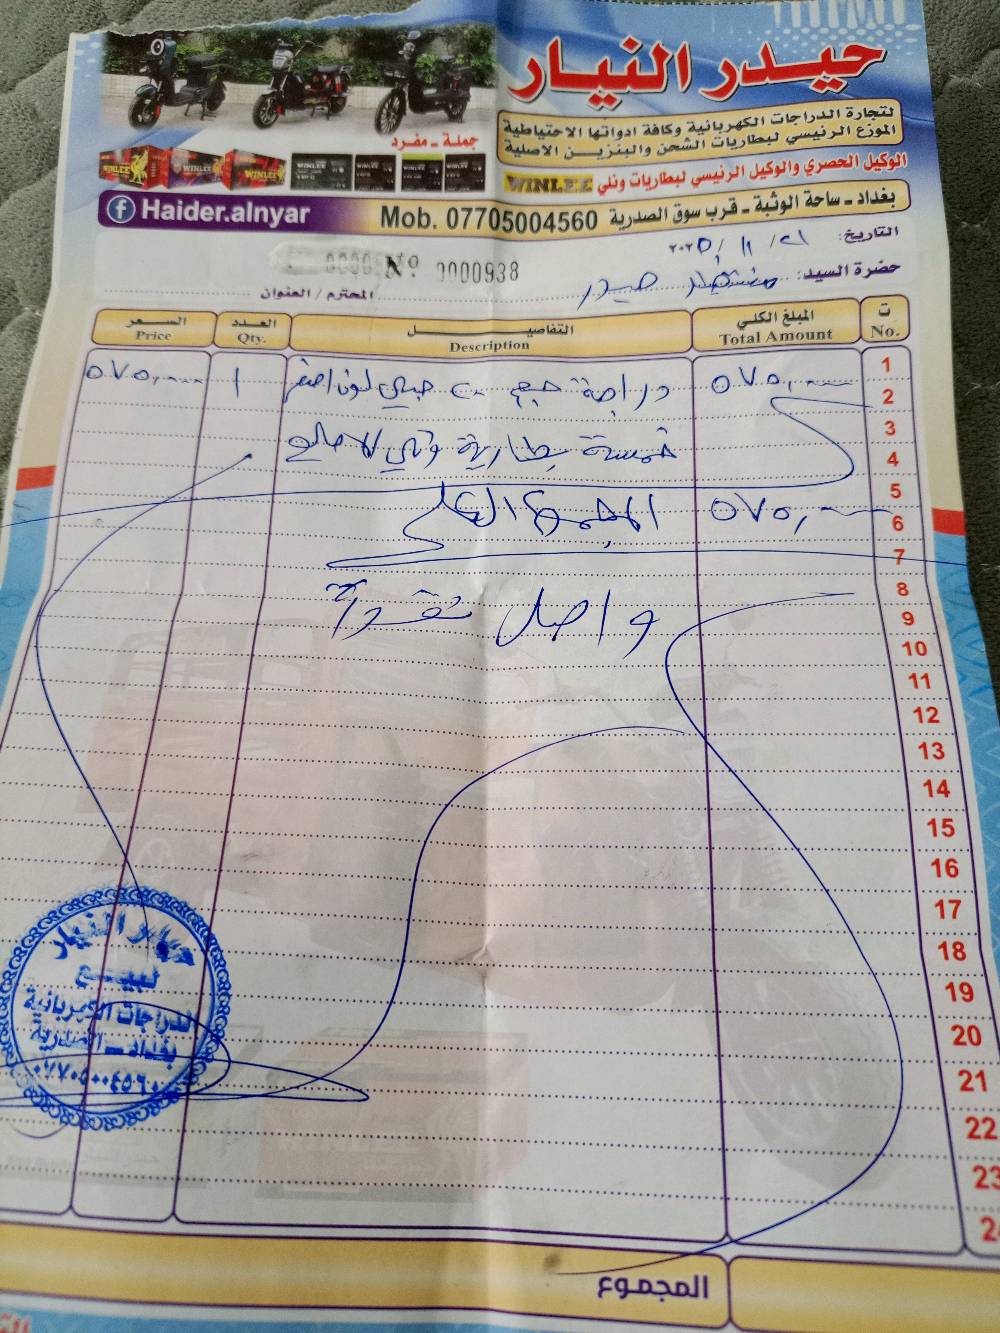 حيدر النيار
لتجارة الدراجات الكهربائية وكافة ادواتها الاحتياطية
الموزع الرئيسي لبطاريات الشحن والبنزين الاصلية
جملة - مفرد
الوكيل الحصري والوكيل الرئيسي لبطاريات ونلي WINLEE
بغداد - ساحة الوثبة - قرب سوق الصدرية Mob. 07705004560
Haider.alnyar
التاريخ: ٢٠٢٥/١١/٢١
Nº 0000938
حضرة السيد: حيدر
المحترم / العنوان
ت المبلغ الكلي التفاصيل العدد السعر
No. Total Amount Description Qty. Price
1 ٥٧٥,٠٠٠ دراجة لون اصفر ١ ٥٧٥,٠٠٠
2
3
خمسة بطارية ونلي
4
5
٥٧٥,٠٠٠ المجموع الكلي
6
7
8
واصل نقداً
9
10
11
12
13
14
15
16
17
18
19
20
21
22
23
24
حيدر النيار
لبيع
الدراجات الكهربائية
بغداد - الصدرية
٠٧٧٠٥٠٠٤٥٦٠
المجموع